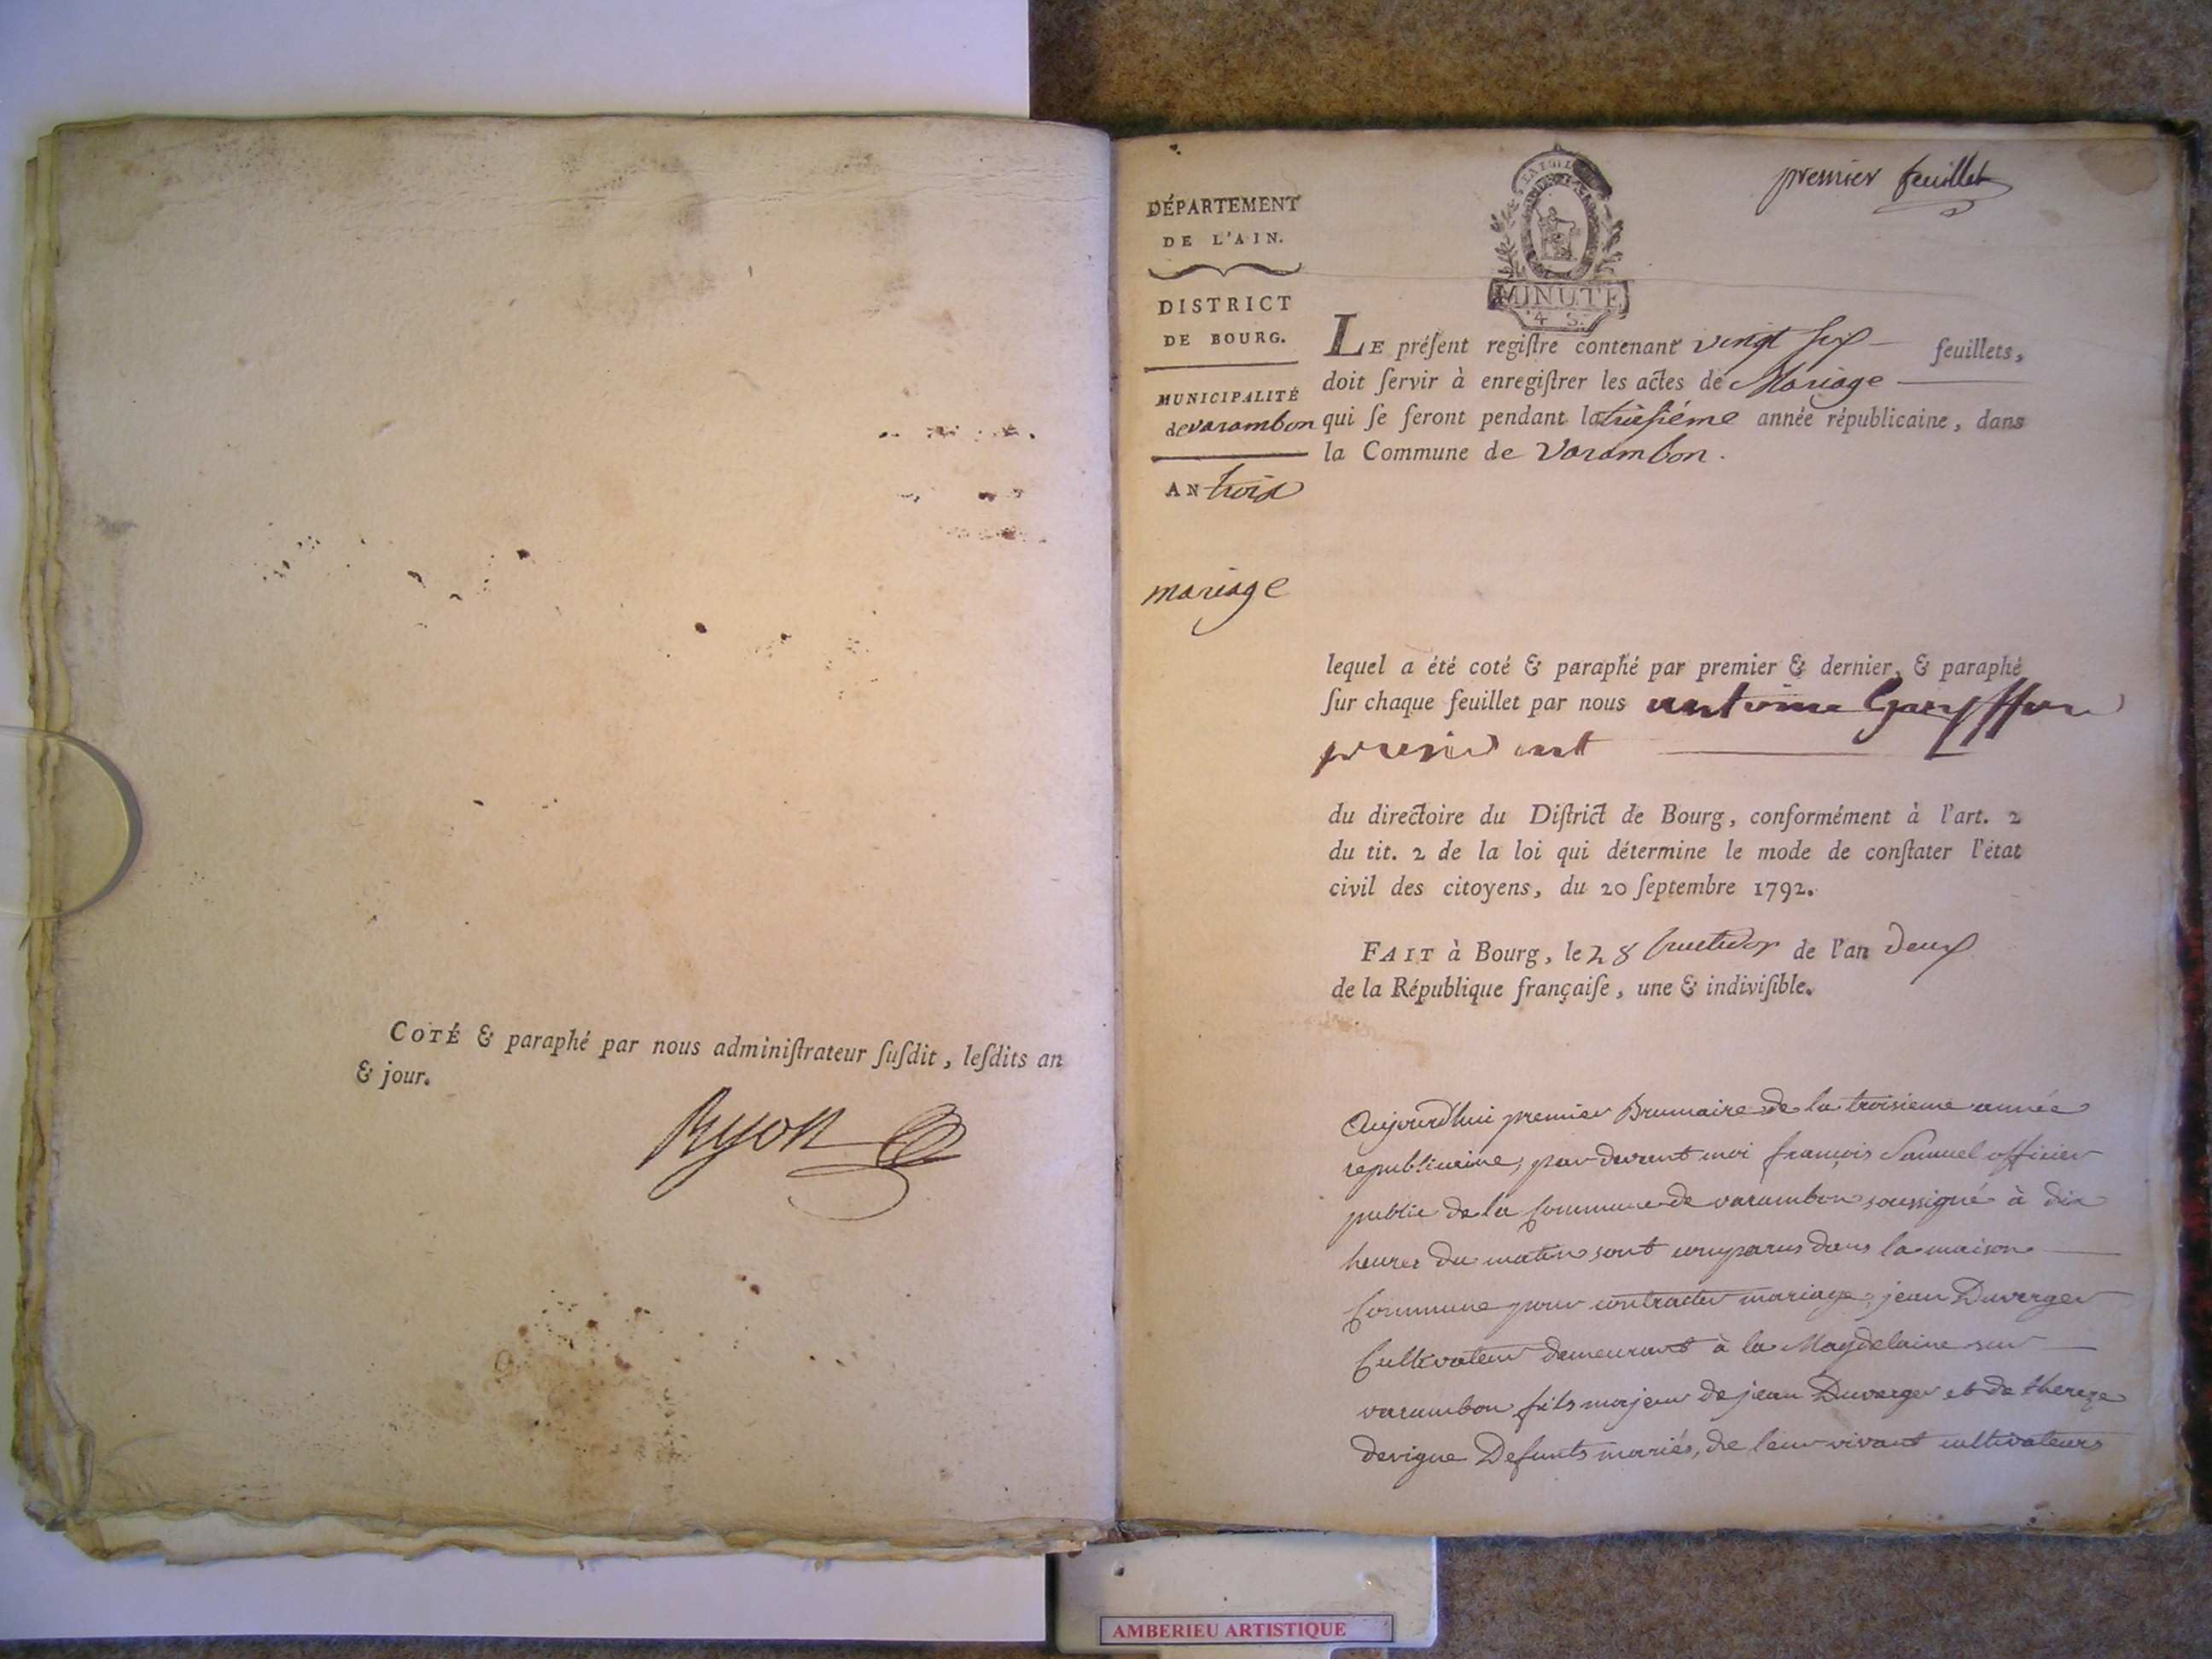 COTÉ & paraphé par nous adminiſtrateur ſuſdit, leſdits an
& jour.
Ryon
premier feuillet
DÉPARTEMENT
DE L'AIN.
DISTRICT
DE BOURG.
MUNICIPALITÉ
de varambon
AN trois
mariage
MINUTE
4 S.
LE préſent regiſtre contenant vingt six feuillets,
doit ſervir à enregiſtrer les actes de Mariage
qui ſe feront pendant la troisiéme année républicaine, dans
la Commune de Varambon.
lequel a été coté & paraphé par premier & dernier, & paraphé
ſur chaque feuillet par nous antoine
president
du directoire du Diſtrict de Bourg, conformément à l'art. 2
du tit. 2 de la loi qui détermine le mode de conſtater l'état
civil des citoyens, du 20 ſeptembre 1792.
FAIT à Bourg, le 28 fructidor de l'an deux
de la République françaiſe, une & indiviſible.
Aujourd'hui premier Brumaire de la troisieme année
republicaine, par devant moi françois Samuel officier
public de la Commune de varambon soussigné à dix
heures du matin sont comparus dans la maison
Commune pour contracter mariage; jean Duverger
Cultivateur demeurant à la Magdelaine sur
varambon fils majeur de jean Duverger et de thereze
devigne Defunts mariés, de leur vivant cultivateurs
AMBERIEU ARTISTIQUE